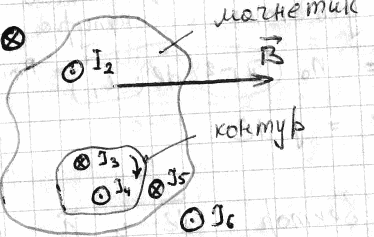 магнетик
I₂
B
контур
I₃
I₄
I₅
I₆